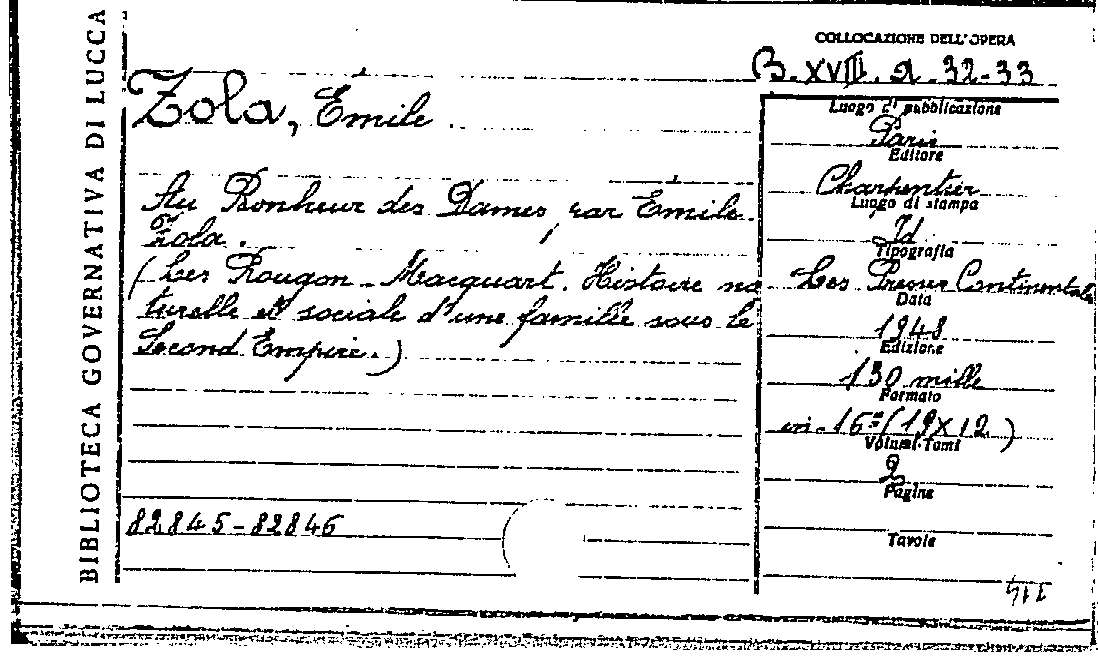 BIBLIOTECA GOVERNATIVA DI LUCCA
COLLOCAZIONE DELL'OPERA
B. XVIII. a. 32-33
Zola, Emile.
Au Bonheur des Dames, par Emile
Zola.
(Les Rougon-Macquart. Histoire na
turelle et sociale d'une famille sous le
Second Empire.)
82845-82846
Luogo di pubblicazione
Paris
Editore
Charpentier
Luogo di stampa
Id.
Tipografia
Les Presses Continentales
Data
1948
Edizione
130 mille
Formato
in-16º (19x12)
Volumi-Tomi
2
Pagine
Tavole